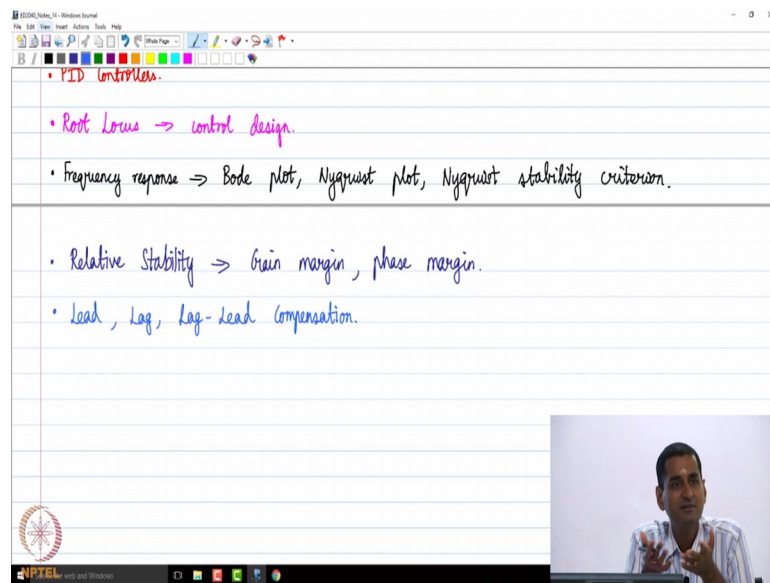 ED2040_Notes_14 - Windows Journal
File Edit View Insert Actions Tools Help
Whole Page
B I
• PID Controllers.
• Root Locus → control design.
• Frequency response → Bode plot, Nyquist plot, Nyquist stability criterion.
• Relative Stability → Gain margin, phase margin.
• Lead, Lag, Lag-Lead Compensation.
NPTEL
web and Windows